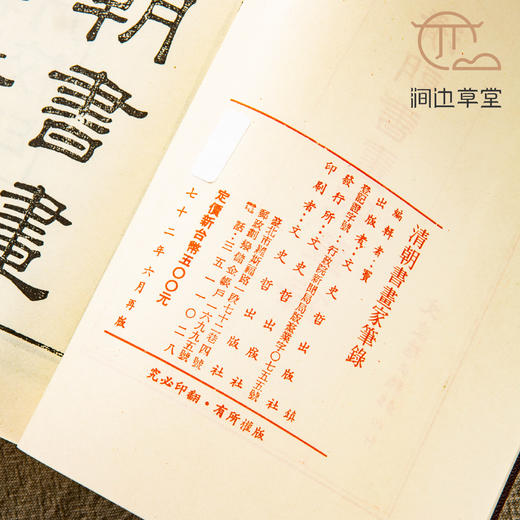 涧边草堂
朝書畫
清朝書畫家筆錄
編輯者：竇鎮
出版者：文史哲出版社
登記證字號：行政院新聞局局版臺業字〇七五五號
發行所：文史哲出版社
印刷者：文史哲出版社
臺北市羅斯福路一段七十二巷四號
郵政劃撥儲金帳戶一六九九五號
電話：三五一一〇二八
定價新台幣五〇〇元
七十二年六月再版
版權所有・翻印必究